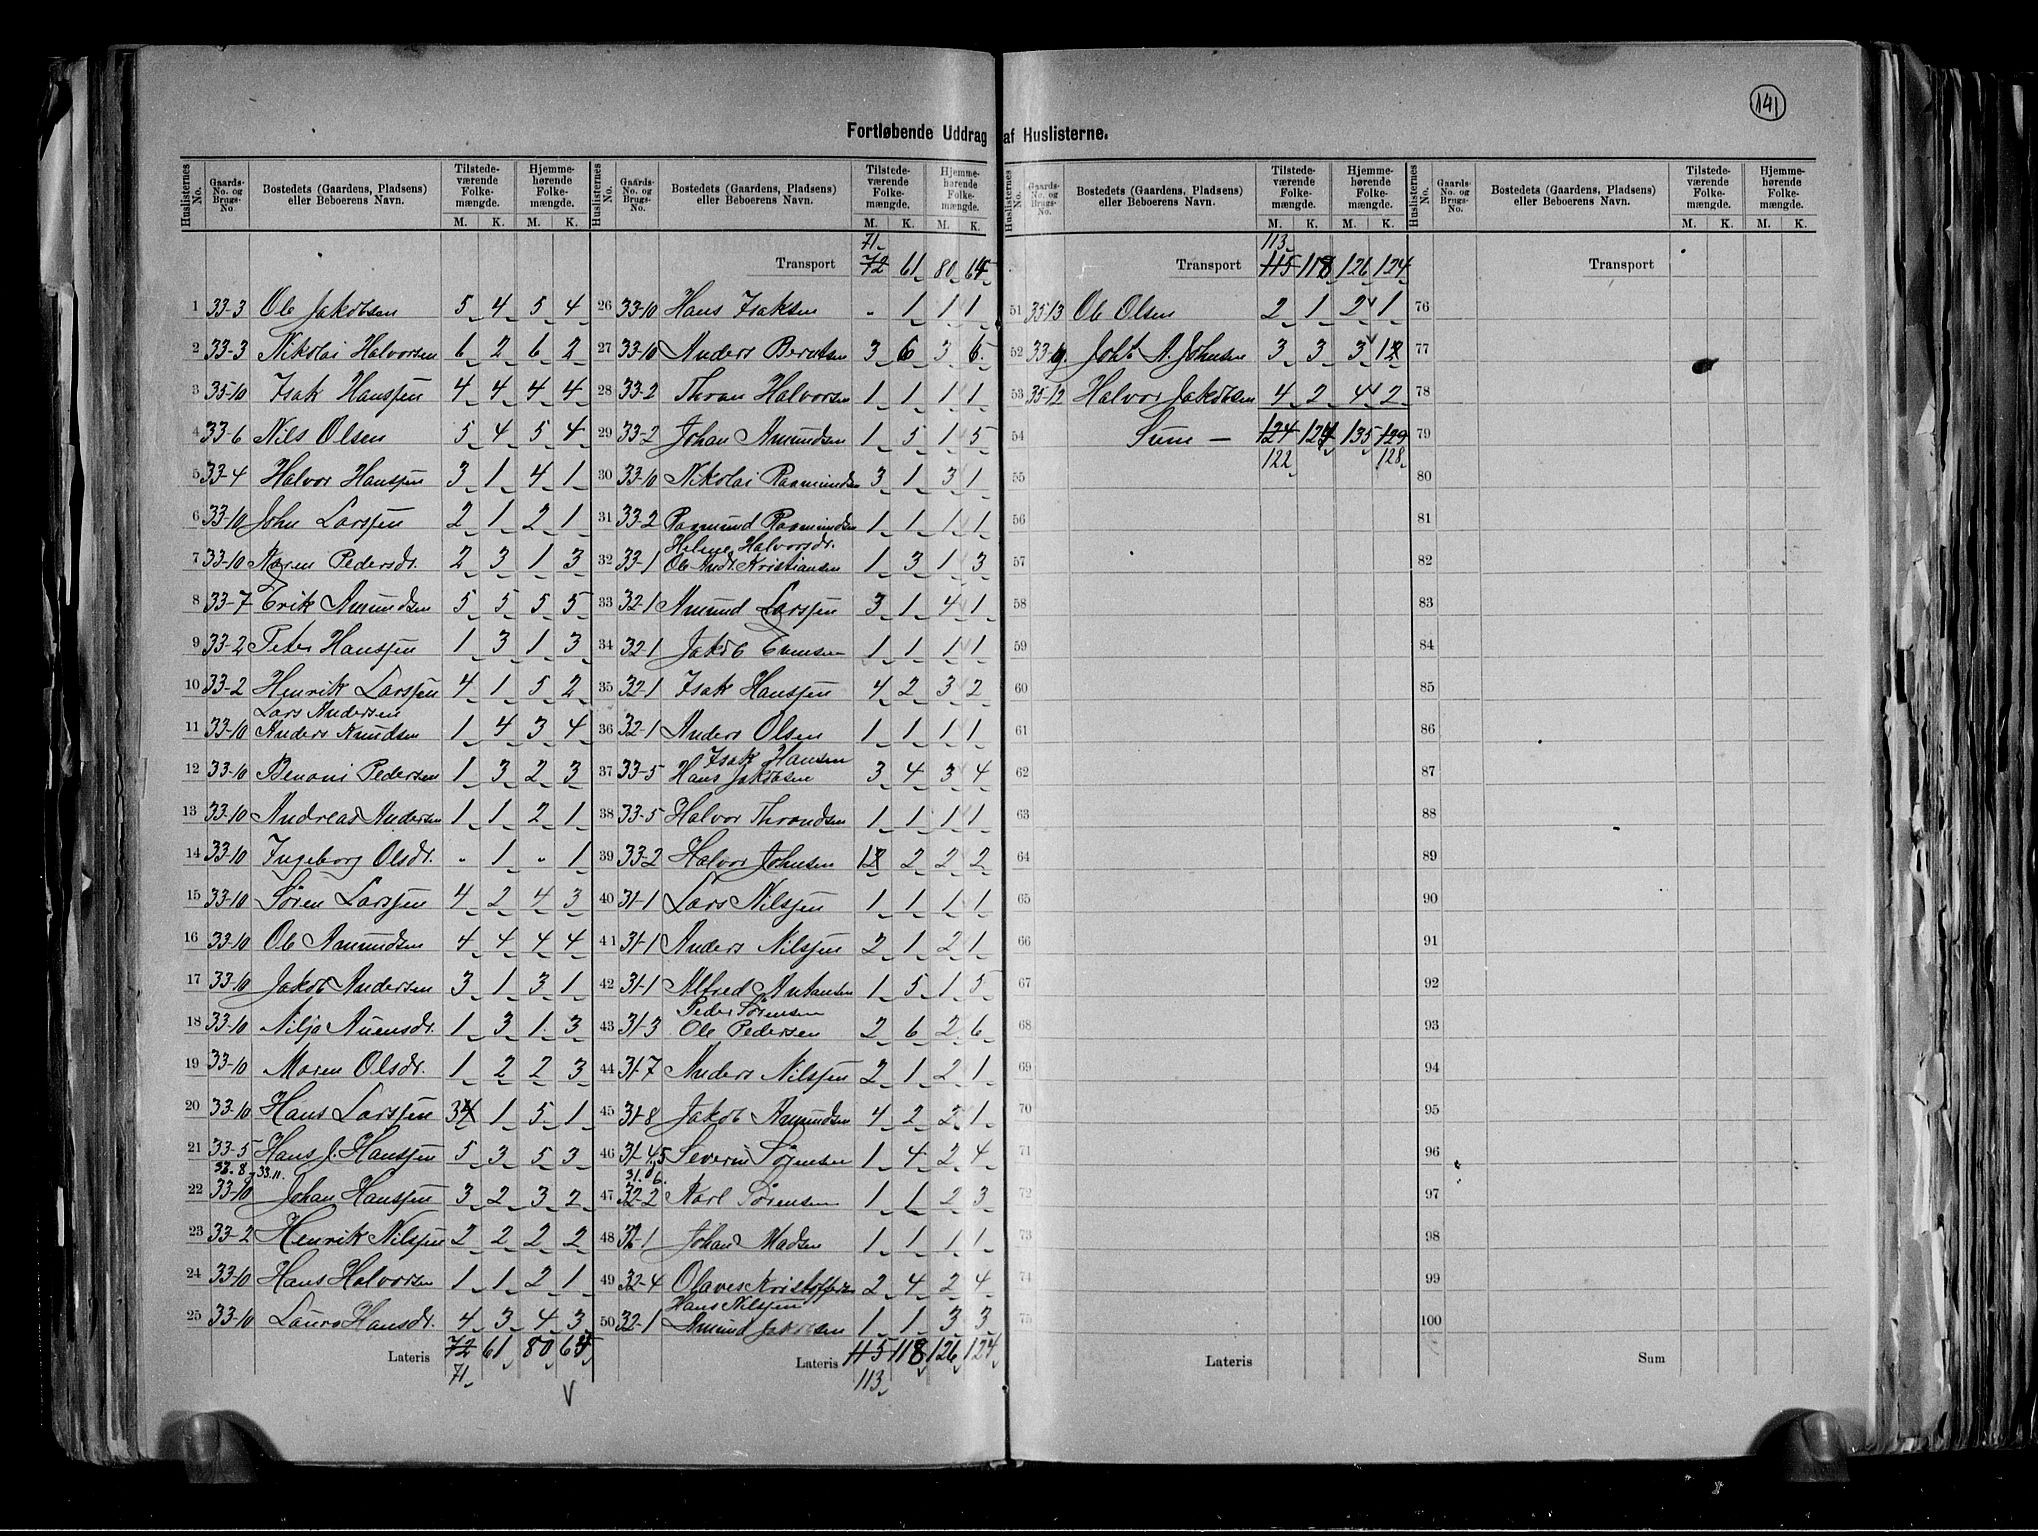 141
Fortløbende Uddrag af Huslisterne.
Huslisternes No. Gaards-No. og Brugs-No. Bostedets (Gaardens, Pladsens) eller Beboerens Navn. Tilstedeværende Folkemængde. M. K. Hjemmehørende Folkemængde. M. K.
1 33-3 Ole Jakobsen 5 4 5 4
2 33-3 Nikolai Halvorsen 6 2 6 2
3 35-10 Isak Hanssen 4 4 4 4
4 33-6 Nils Olsen 5 4 5 4
5 33-4 Halvor Hanssen 3 1 4 1
6 33-10 John Larssen 2 1 2 1
7 33-10 Karen Pedersdr. 2 3 1 3
8 33-7 Erik Amundsen 5 5 5 5
9 33-2 Peter Hanssen 1 3 1 3
10 33-2 Henrik Larssen 4 1 5 2
Lars Andersen
11 33-10 Anders Knudsen 1 4 3 4
12 33-10 Benoni Pedersen 1 3 2 3
13 33-10 Andreas Andersen 1 1 2 1
14 33-10 Ingeborg Olsdr. " 1 " 1
15 33-10 Søren Larssen 4 2 4 3
16 33-10 Ole Aamundsen 4 4 4 4
17 33-10 Jakob Andersen 3 1 3 1
18 33-10 Silja Auensdr. 1 3 1 3
19 33-10 Maren Olsdr. 1 2 2 3
20 33-10 Hans Larssen 3 1 5 1
21 33-5 Hans J. Hanssen 5 3 5 3
33-8 33.11.
22 33-10 Johan Hanssen 3 2 3 2
23 33-2 Henrik Nilssen 2 2 2 2
24 33-10 Hans Halvorsen 1 1 2 1
25 33-10 Laura Hansdr. 4 3 4 3
Lateris 72 61 80 64
71
Huslisternes No. Gaards-No. og Brugs-No. Bostedets (Gaardens, Pladsens) eller Beboerens Navn. Tilstedeværende Folkemængde. M. K. Hjemmehørende Folkemængde. M. K.
71
Transport 72 61 80 64
26 33-10 Hans Isaksen " 1 1 1
27 33-10 Anders Berntsen 3 6 3 6
28 33-2 Thron Halvorsen 1 1 1 1
29 33-2 Johan Amundsen 1 5 1 5
30 33-10 Nikolai Rasmundsen 3 1 3 1
31 33-2 Rasmund Rasmundsen 1 1 1 1
Helene Halvorsdr.
32 33-1 Ole Andr. Kristiansen 1 3 1 3
33 32-1 Amund Larssen 3 1 4 1
34 32-1 Jakob Evensen 1 1 1 1
35 32-1 Isak Hanssen 4 2 3 2
36 32-1 Anders Olsen 1 1 1 1
Isak Hansen
37 33-5 Hans Jakobsen 3 4 3 4
38 33-5 Halvor Throndsen 1 1 1 1
39 33-2 Halvor Johnsen 1 2 2 2
40 31-1 Lars Nilssen 1 1 1 1
41 31-1 Anders Nilssen 2 1 2 1
42 31-1 Alfred Antonsen 1 5 1 5
Peder Sørensen
43 31-3 Ole Pedersen 2 6 2 6
44 31-7 Anders Nilssen 2 1 2 1
45 31-8 Jakob Aamundsen 4 2 2 1
46 31-4,5 Severin Sørensen 1 4 2 4
31.06.
47 32-2 Karl Sørensen 1 1 2 3
48 32-1 Johan Madsen 1 1 1 1
49 32-4 Olaves Kristoffersen 2 4 2 4
Hans Nilssen
50 32-1 Amund Jakobsen 1 1 3 3
Lateris 115 118 126 124
113
Huslisternes No. Gaards-No. og Brugs-No. Bostedets (Gaardens, Pladsens) eller Beboerens Navn. Tilstedeværende Folkemængde. M. K. Hjemmehørende Folkemængde. M. K.
113
Transport 115 118 126 124
51 35-13 Ole Olsen 2 1 2 1
52 33-9 Joh. A. Johnsen 3 3 3 1
53 35-12 Halvor Jakobsen 4 2 4 2
54 Sum — 124 124 135 129
122 128
55
56
57
58
59
60
61
62
63
64
65
66
67
68
69
70
71
72
73
74
75
Lateris
Huslisternes No. Gaards-No. og Brugs-No. Bostedets (Gaardens, Pladsens) eller Beboerens Navn. Tilstedeværende Folkemængde. M. K. Hjemmehørende Folkemængde. M. K.
Transport
76
77
78
79
80
81
82
83
84
85
86
87
88
89
90
91
92
93
94
95
96
97
98
99
100
Sum